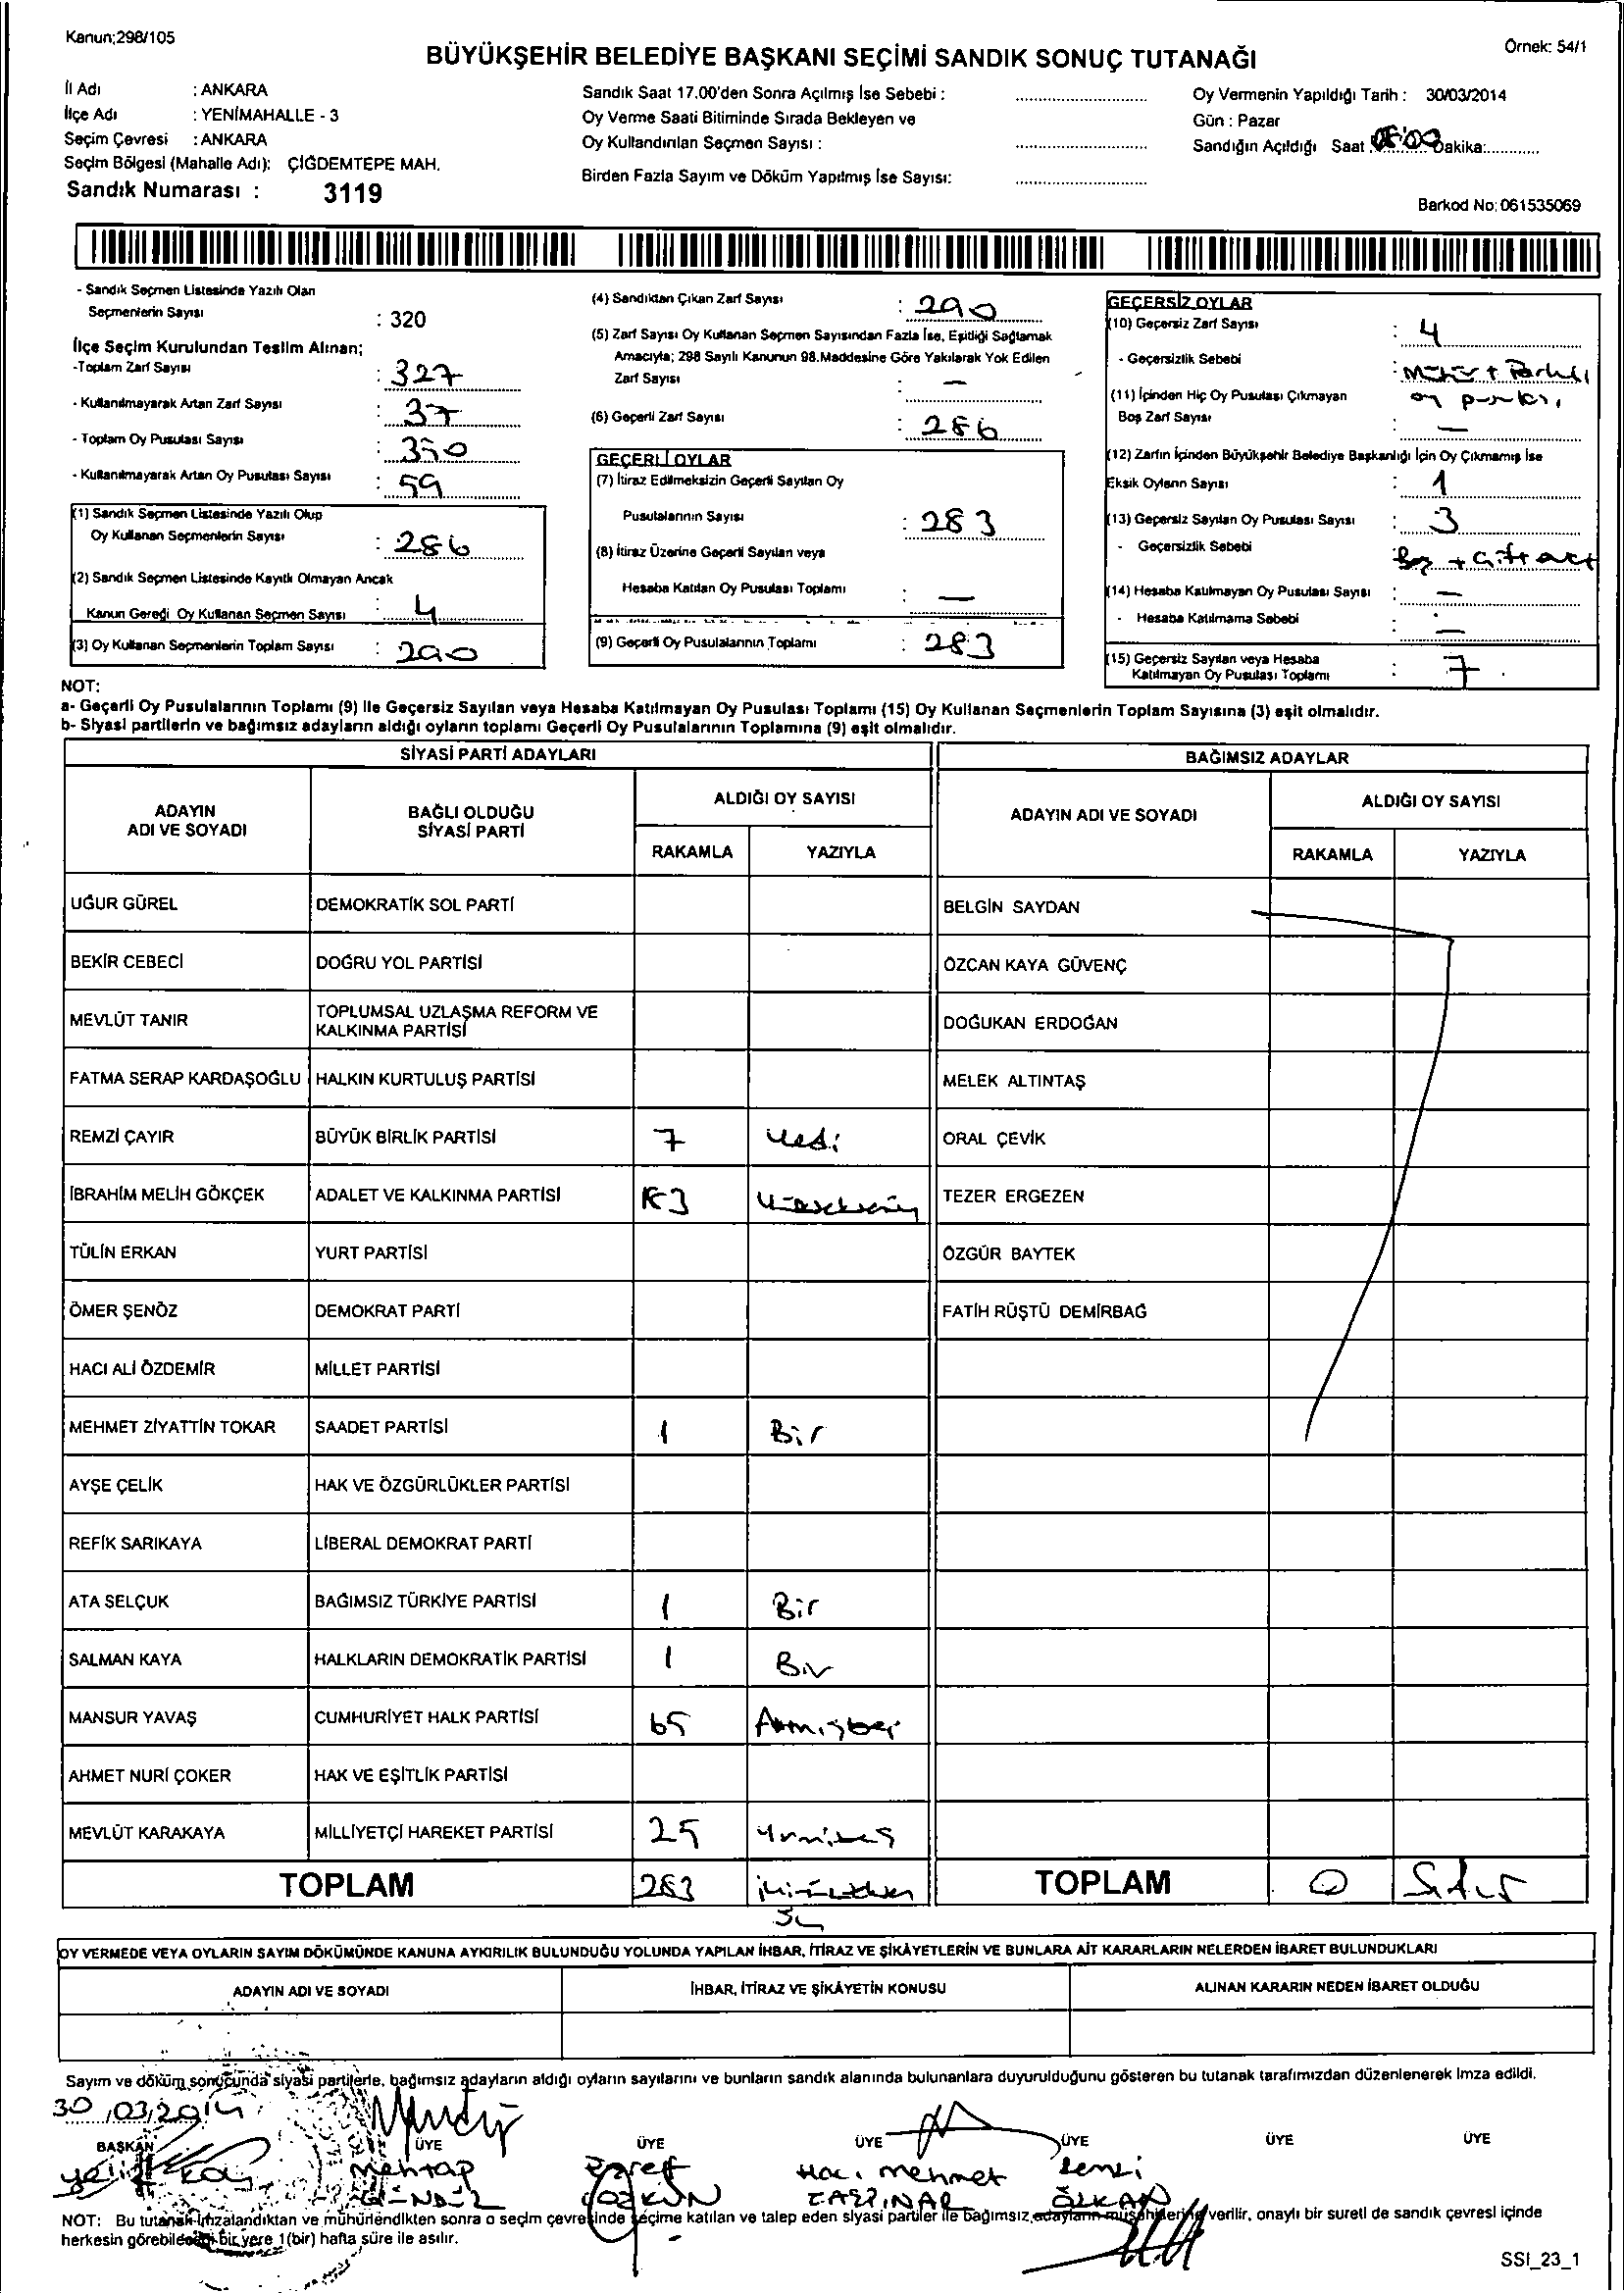 Kanun;298/105
Örnek: 54/1
BÜYÜKŞEHİR BELEDİYE BAŞKANI SEÇİMİ SANDIK SONUÇ TUTANAĞI
İl Adı : ANKARA
İlçe Adı : YENİMAHALLE - 3
Seçim Çevresi : ANKARA
Seçim Bölgesi (Mahalle Adı): ÇİĞDEMTEPE MAH.
Sandık Numarası : 3119
Sandık Saat 17.00'den Sonra Açılmış İse Sebebi :
Oy Verme Saati Bitiminde Sırada Bekleyen ve
Oy Kullandırılan Seçmen Sayısı :
Birden Fazla Sayım ve Döküm Yapılmış İse Sayısı:
Oy Vermenin Yapıldığı Tarih : 30/03/2014
Gün : Pazar
Sandığın Açıldığı Saat Dakika:
Barkod No: 061535069
- Sandık Seçmen Listesinde Yazılı Olan
Seçmenlerin Sayısı : 320
İlçe Seçim Kurulundan Teslim Alınan;
-Toplam Zarf Sayısı : 327
- Kullanılmayarak Artan Zarf Sayısı : 37
- Toplam Oy Pusulası Sayısı : 350
- Kullanılmayarak Artan Oy Pusulası Sayısı : 59
(1) Sandık Seçmen Listesinde Yazılı Olup
Oy Kullanan Seçmenlerin Sayısı : 286
(2) Sandık Seçmen Listesinde Kayıtlı Olmayan Ancak
Kanun Gereği Oy Kullanan Seçmen Sayısı : 4
(3) Oy Kullanan Seçmenlerin Toplam Sayısı : 290
(4) Sandıktan Çıkan Zarf Sayısı : 290
(5) Zarf Sayısı Oy Kullanan Seçmen Sayısından Fazla İse, Eşitliği Sağlamak
Amacıyla; 298 Sayılı Kanunun 98.Maddesine Göre Yakılarak Yok Edilen
Zarf Sayısı : —
(6) Geçerli Zarf Sayısı : 286
GEÇERLİ OYLAR
(7) İtiraz Edilmeksizin Geçerli Sayılan Oy
Pusulalarının Sayısı : 283
(8) İtiraz Üzerine Geçerli Sayılan veya
Hesaba Katılan Oy Pusulası Toplamı : —
(9) Geçerli Oy Pusulalarının Toplamı : 283
GEÇERSİZ OYLAR
(10) Geçersiz Zarf Sayısı : 4
- Geçersizlik Sebebi :
(11) İçinden Hiç Oy Pusulası Çıkmayan
Boş Zarf Sayısı : —
(12) Zarfın İçinden Büyükşehir Belediye Başkanlığı İçin Oy Çıkmamış İse
Eksik Oyların Sayısı : 1
(13) Geçersiz Sayılan Oy Pusulası Sayısı : 3
- Geçersizlik Sebebi
(14) Hesaba Katılmayan Oy Pusulası Sayısı : —
- Hesaba Katılmama Sebebi : —
(15) Geçersiz Sayılan veya Hesaba
Katılmayan Oy Pusulası Toplamı : 7
NOT:
a- Geçerli Oy Pusulalarının Toplamı (9) İle Geçersiz Sayılan veya Hesaba Katılmayan Oy Pusulası Toplamı (15) Oy Kullanan Seçmenlerin Toplam Sayısına (3) eşit olmalıdır.
b- Siyasi partilerin ve bağımsız adayların aldığı oyların toplamı Geçerli Oy Pusulalarının Toplamına (9) eşit olmalıdır.
SİYASİ PARTİ ADAYLARI
BAĞIMSIZ ADAYLAR
ADAYIN ADI VE SOYADI
BAĞLI OLDUĞU SİYASİ PARTİ
ALDIĞI OY SAYISI
RAKAMLA YAZIYLA
ADAYIN ADI VE SOYADI
ALDIĞI OY SAYISI
RAKAMLA YAZIYLA
UĞUR GÜREL DEMOKRATİK SOL PARTİ BELGİN SAYDAN
BEKİR CEBECİ DOĞRU YOL PARTİSİ ÖZCAN KAYA GÜVENÇ
MEVLÜT TANIR TOPLUMSAL UZLAŞMA REFORM VE KALKINMA PARTİSİ DOĞUKAN ERDOĞAN
FATMA SERAP KARDAŞOĞLU HALKIN KURTULUŞ PARTİSİ MELEK ALTINTAŞ
REMZİ ÇAYIR BÜYÜK BİRLİK PARTİSİ 7 Yedi ORAL ÇEVİK
İBRAHİM MELİH GÖKÇEK ADALET VE KALKINMA PARTİSİ 183 TEZER ERGEZEN
TÜLİN ERKAN YURT PARTİSİ ÖZGÜR BAYTEK
ÖMER ŞENÖZ DEMOKRAT PARTİ FATİH RÜŞTÜ DEMİRBAĞ
HACI ALİ ÖZDEMİR MİLLET PARTİSİ
MEHMET ZİYATTİN TOKAR SAADET PARTİSİ 1 Bir
AYŞE ÇELİK HAK VE ÖZGÜRLÜKLER PARTİSİ
REFİK SARIKAYA LİBERAL DEMOKRAT PARTİ
ATA SELÇUK BAĞIMSIZ TÜRKİYE PARTİSİ 1 Bir
SALMAN KAYA HALKLARIN DEMOKRATİK PARTİSİ 1 Bir
MANSUR YAVAŞ CUMHURİYET HALK PARTİSİ 65 Atmışbeş
AHMET NURİ ÇOKER HAK VE EŞİTLİK PARTİSİ
MEVLÜT KARAKAYA MİLLİYETÇİ HAREKET PARTİSİ 25 Yirmibeş
TOPLAM 283 TOPLAM 0 Sıfır
OY VERMEDE VEYA OYLARIN SAYIM DÖKÜMÜNDE KANUNA AYKIRILIK BULUNDUĞU YOLUNDA YAPILAN İHBAR, İTİRAZ VE ŞİKÂYETLERİN VE BUNLARA AİT KARARLARIN NELERDEN İBARET BULUNDUKLARI
ADAYIN ADI VE SOYADI İHBAR, İTİRAZ VE ŞİKÂYETİN KONUSU ALINAN KARARIN NEDEN İBARET OLDUĞU
Sayım ve döküm sonucunda siyasi partilerle, bağımsız adayların aldığı oyların sayılarını ve bunların sandık alanında bulunanlara duyurulduğunu gösteren bu tutanak tarafımızdan düzenlenerek imza edildi.
30/03/2014
BAŞKAN ÜYE ÜYE ÜYE ÜYE ÜYE ÜYE
Mehtap Hac. mehmet
GÜNDÜZ ÖZKÜN TAŞPINAR ÖLKAN
NOT: Bu tutanak imzalandıktan ve mühürlendikten sonra o seçim çevresinde seçime katılan ve talep eden siyasi partiler ile bağımsız adayların müşahitlerine verilir, onaylı bir sureti de sandık çevresi içinde
herkesin görebileceği bir yere 1(bir) hafta süre ile asılır.
SSI_23_1